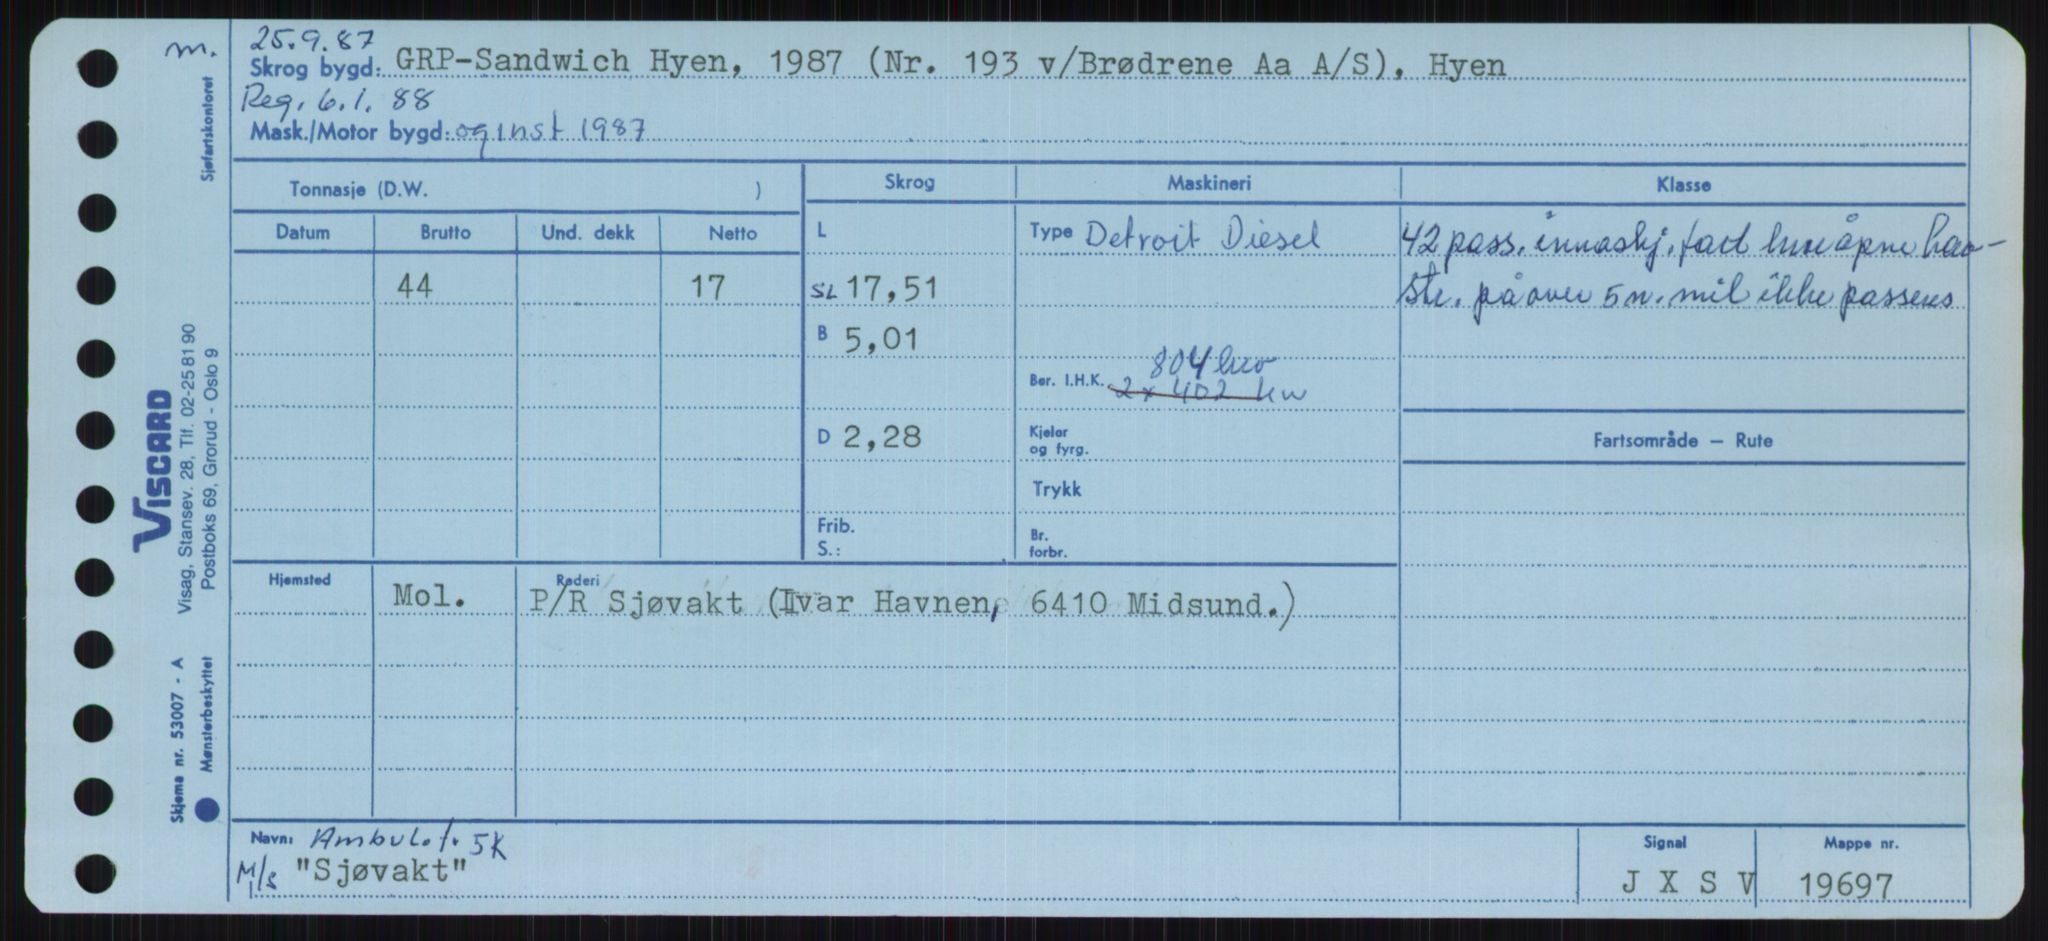 m.
25.9.87
Skrog bygd: GRP-Sandwich Hyen, 1987 (Nr. 193 v/Brødrene Aa A/S), Hyen
Reg. 6.1. 88
Mask./Motor bygd: og inst 1987
Sjøfartskontoret
Tonnasje (D.W. )
Skrog
Maskineri
Klasse
Datum Brutto Und. dekk Netto
L
Type Detroit Diesel
42 pass. innaskj. fart hvor åpne hav-
44 17
SL 17,51
str. på over 5 n. mil ikke passeres
B 5,01
804 kw
Ber. I.H.K. 2 x 402 kw
D 2,28
Kjeler
og fyrg.
Fartsområde – Rute
Trykk
Frib.
S.:
Br.
forbr.
Hjemsted
Rederi
Mol. P/R Sjøvakt (Ivar Havnen, 6410 Midsund.)
VISCARD
Visag, Stansev. 28, Tlf. 02-25 81 90
Postboks 69, Grorud - Oslo 9
Skjema nr. 53007 - A
Mønsterbeskyttet
Navn: Ambul.f. SK
M/s "Sjøvakt"
Signal
J X S V
Mappe nr.
19697